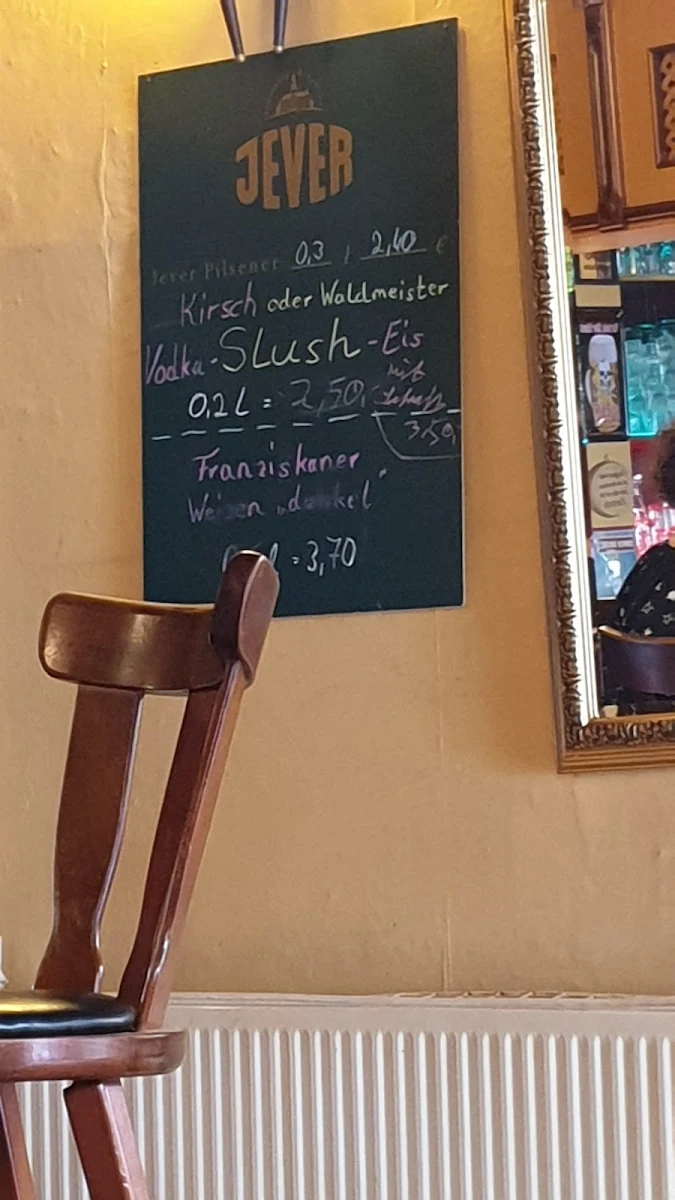 JEVER
Jever Pilsener 0,3 / 2,40 €
Kirsch oder Waldmeister
Vodka-Slush-Eis
0,2 L = 2,50,-
mit
3.50,-
Franziskaner
Weizen „dunkel"
= 3,70